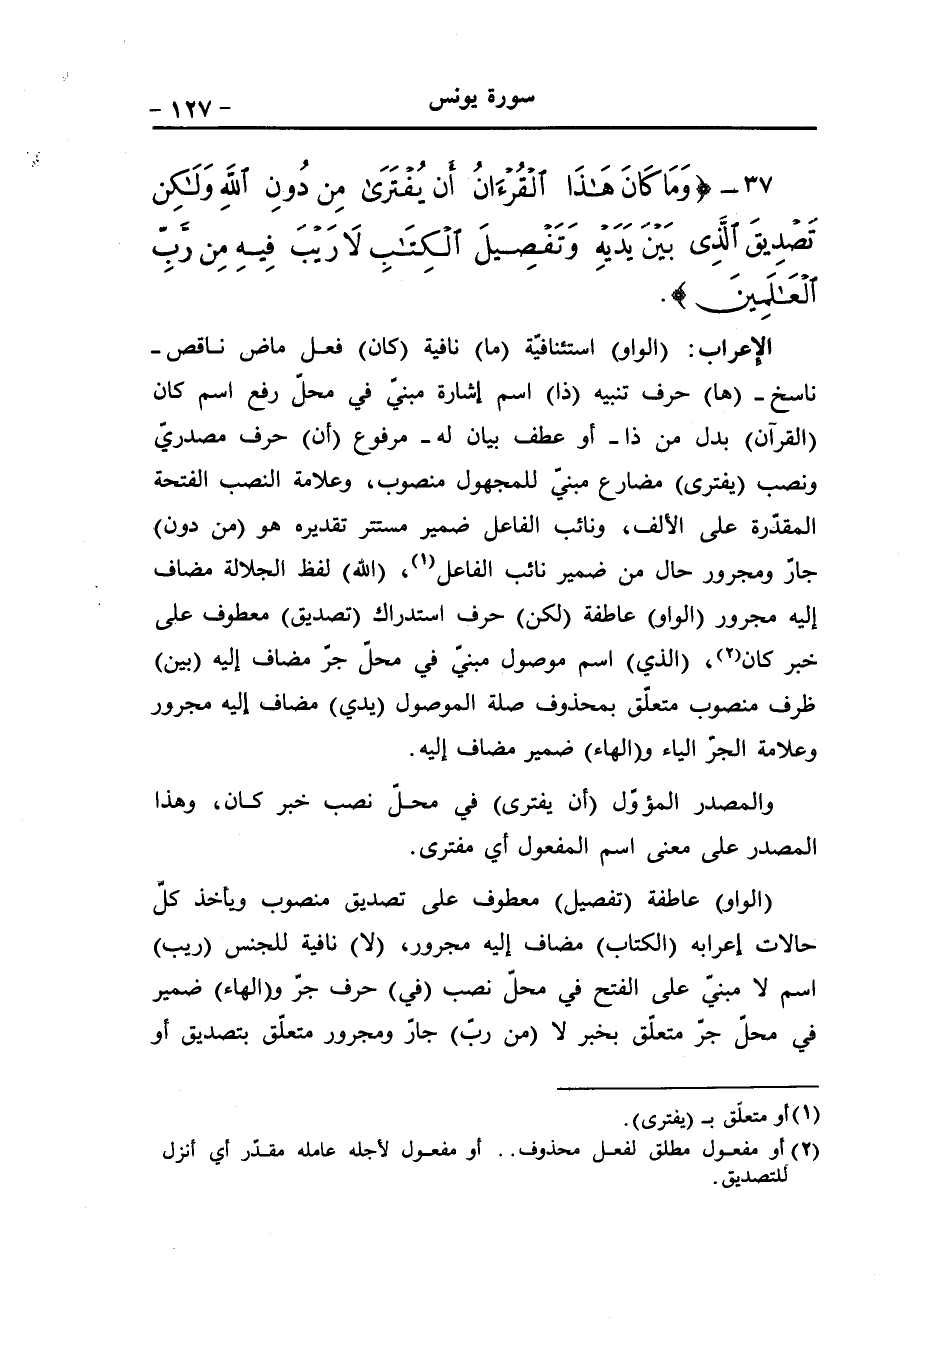 سورة يونس
- ١٢٧ -
٣٧ـ ﴿وَمَا كَانَ هَـٰذَا ٱلْقُرْءَانُ أَن يُفْتَرَىٰ مِن دُونِ ٱللَّهِ وَلَـٰكِن
تَصْدِيقَ ٱلَّذِى بَيْنَ يَدَيْهِ وَتَفْصِيلَ ٱلْكِتَـٰبِ لَا رَيْبَ فِيهِ مِن رَّبِّ
ٱلْعَـٰلَمِينَ﴾.
الإعراب: (الواو) استئنافيّة (ما) نافية (كان) فعل ماض ناقص ـ
ناسخ ـ (ها) حرف تنبيه (ذا) اسم إشارة مبنيّ في محلّ رفع اسم كان
(القرآن) بدل من ذا ـ أو عطف بيان له ـ مرفوع (أن) حرف مصدريّ
ونصب (يفترى) مضارع مبنيّ للمجهول منصوب، وعلامة النصب الفتحة
المقدّرة على الألف، ونائب الفاعل ضمير مستتر تقديره هو (من دون)
جارّ ومجرور حال من ضمير نائب الفاعل(١)، (الله) لفظ الجلالة مضاف
إليه مجرور (الواو) عاطفة (لكن) حرف استدراك (تصديق) معطوف على
خبر كان(٢)، (الذي) اسم موصول مبنيّ في محلّ جرّ مضاف إليه (بين)
ظرف منصوب متعلّق بمحذوف صلة الموصول (يدي) مضاف إليه مجرور
وعلامة الجرّ الياء و(الهاء) ضمير مضاف إليه.
والمصدر المؤوّل (أن يفترى) في محلّ نصب خبر كان، وهذا
المصدر على معنى اسم المفعول أي مفترى.
(الواو) عاطفة (تفصيل) معطوف على تصديق منصوب ويأخذ كلّ
حالات إعرابه (الكتاب) مضاف إليه مجرور، (لا) نافية للجنس (ريب)
اسم لا مبنيّ على الفتح في محلّ نصب (في) حرف جرّ و(الهاء) ضمير
في محلّ جرّ متعلّق بخبر لا (من ربّ) جارّ ومجرور متعلّق بتصديق أو
(١) أو متعلّق بـ (يفترى).
(٢) أو مفعول مطلق لفعل محذوف.. أو مفعول لأجله عامله مقدّر أي أنزل
للتصديق.